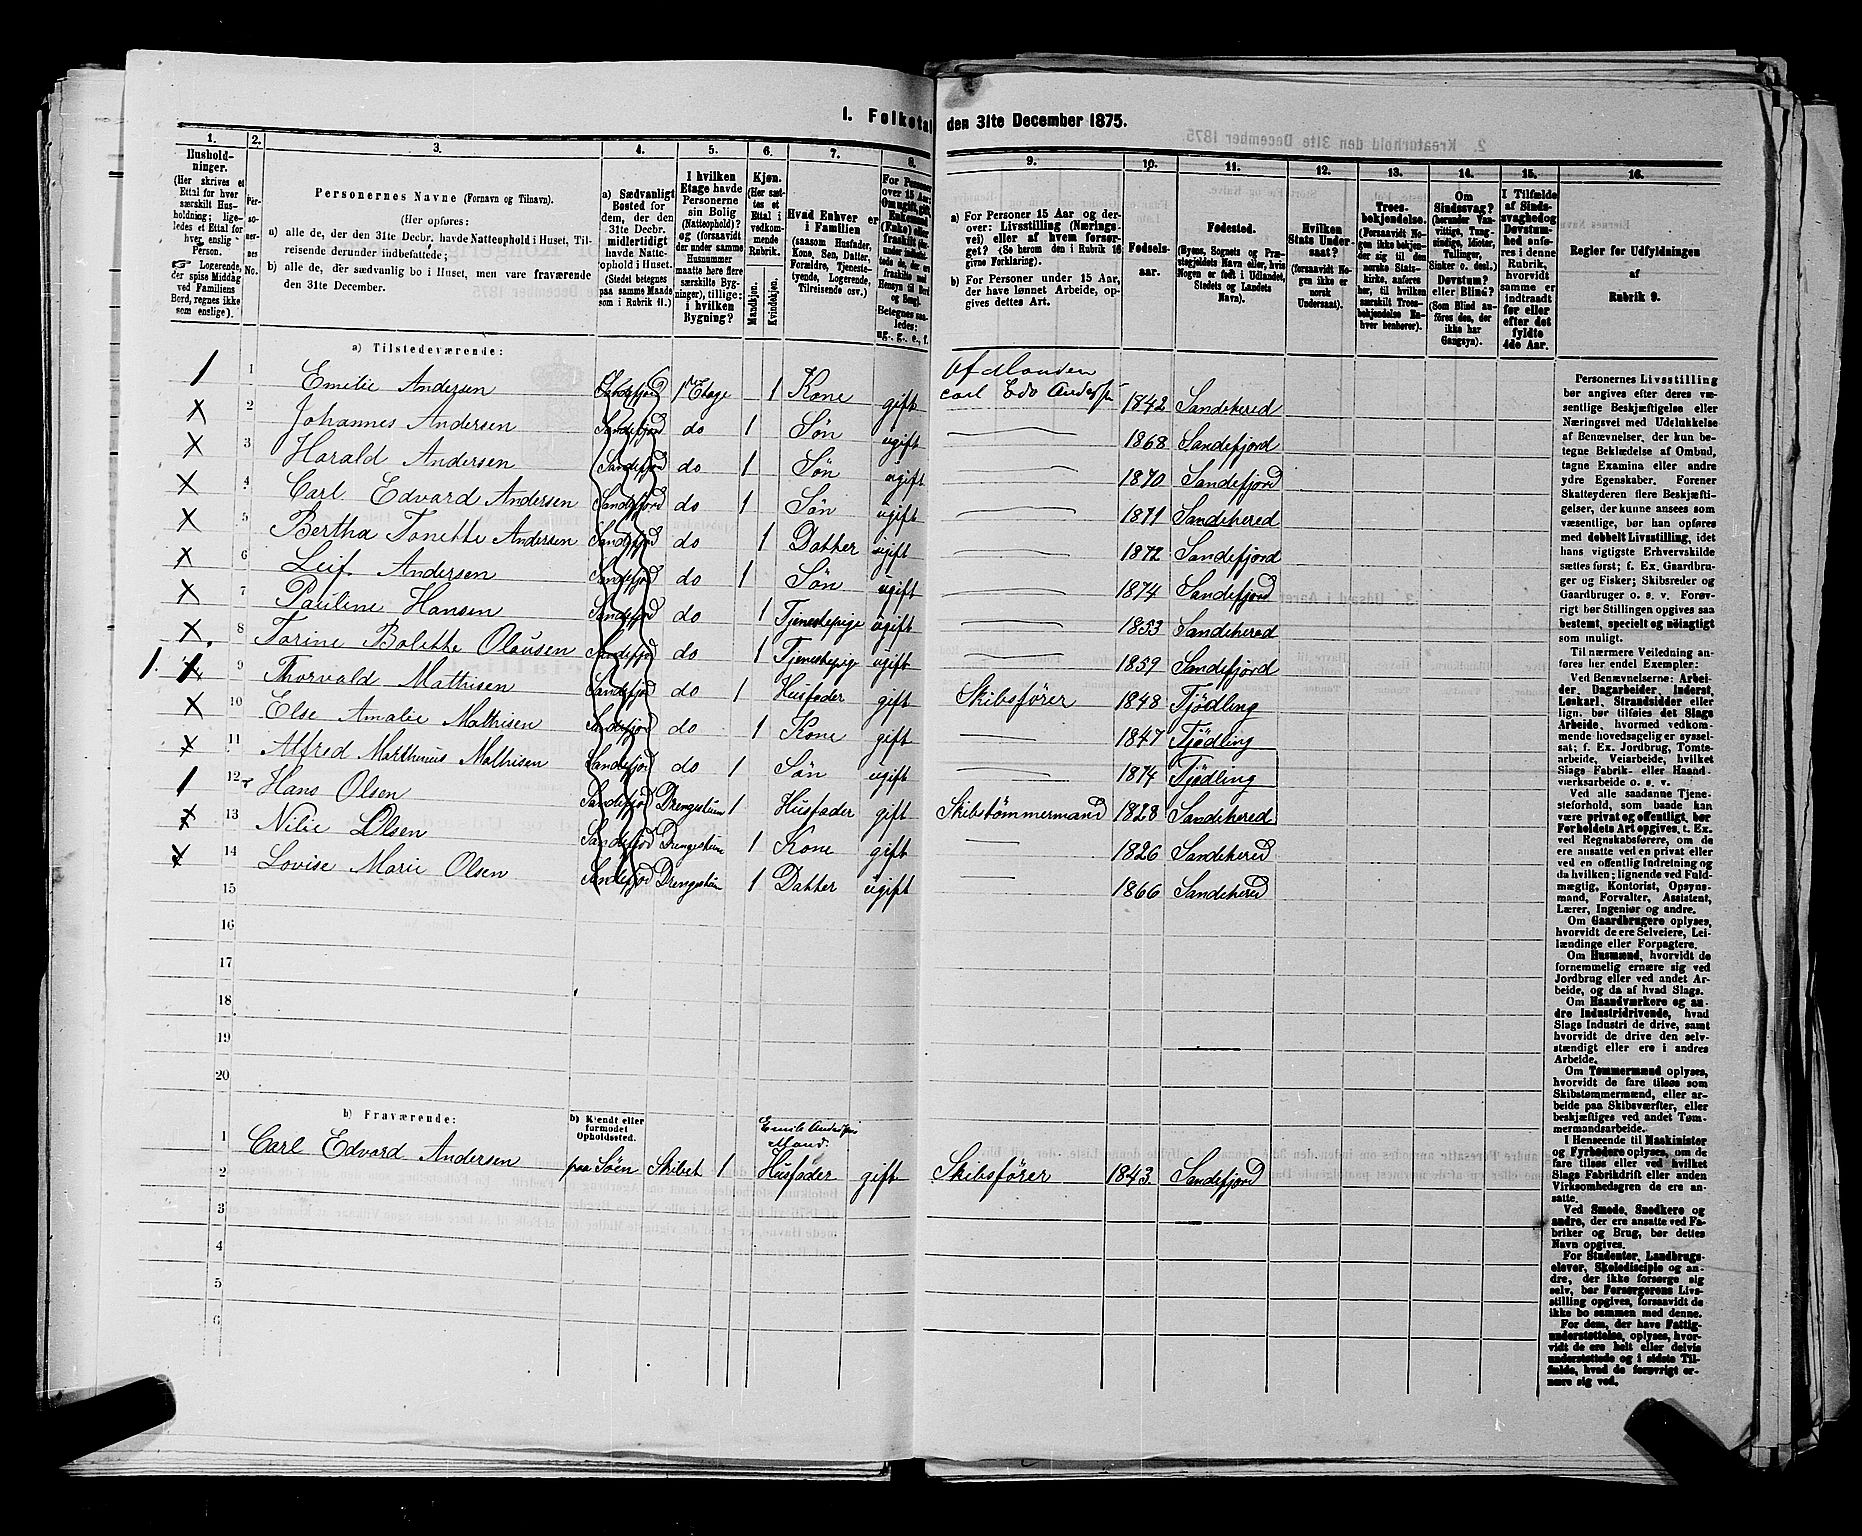 I. Folketal den 31te December 1875.
1. 2. 3. 4. 5. 6. 7. 8. 9. 10. 11. 12. 13. 14. 15. 16.
Husholdninger.
(Her skrives et Ettal for hver særskilt Husholdning; ligeledes et Ettal for hver enslig Person.
Logerende, der spise Middag ved Familiens Bord, regnes ikke som enslige).
Personernes No.
Personernes Navne (Fornavn og Tilnavn).
(Her opføres:
a) alle de, der den 31te Decbr. havde Natteophold i Huset, Tilreisende derunder indbefattede;
b) alle de, der sædvanlig bo i Huset, men vare fraværende den 31te December.
a) Sædvanligt Bosted for dem, der den 31te Decbr. midlertidigt havde Natteophold i Huset.
(Stedet betegnes paa samme Maade som i Rubrik 11.)
I hvilken Etage havde Personerne sin Bolig (Natteophold)? og (forsaavidt der under samme Husnummer maatte høre flere særskilte Bygninger), tillige: i hvilken Bygning?
Kjøn.
(Her sættes et Ettal i vedkommende Rubrik.
Mandkjøn. Kvindekjøn.
Hvad Enhver er i Familien
(saasom Husfader, Kone, Søn, Datter, Forældre, Tjenestetyende, Logerende, Tilreisende osv.)
a) For Personer 15 Aar og derover: Livsstilling (Næringsvei) eller af hvem forsørget? (Se herom den i Rubrik 16 givne Forklaring).
b) For Personer under 15 Aar, der have lønnet Arbeide, opgives dettes Art.
Fødselsaar.
Fødested.
(Byens, Sognets og Præstegjeldets Navn eller, hvis Nogen er født i Udlandet, Stedets og Landets Navn).
Hvilken Stats Undersaat?
(forsaavidt Nogen ikke er norsk Undersaat).
Troesbekjendelse.
(Forsaavidt Nogen ikke bekjender sig til den norske Statskirke, anføres her, til hvilken særskilt Troesbekjendelse Enhver henhører).
Om Sindssvag? (herunder Vanvittige, Tungsindige, Idioter, Tullinger, Sinker o. desl.) Døvstum? eller Blind?
(Som Blind anføres den, der ikke har Gangsyn).
I Tilfælde af Sindssvaghed og Døvstumhed anføres i denne Rubrik, hvorvidt samme er indtraadt før eller efter det fyldte 4de Aar.
Regler for Udfyldningen af Rubrik 9.
a) Tilstedeværende:
1 1 Emilie Andersen 1 Etage 1 Kone gift Af Manden Carl Edv Andersen 1842 Sandeherred
x 2 Johannes Andersen Sandefjord do 1 Søn ugift 1868 Sandefjord
x 3 Harald Andersen Sandefjord do 1 Søn ugift 1870 Sandefjord
x 4 Carl Edvard Andersen Sandefjord do 1 Søn ugift 1871 Sandeherred
x 5 Bertha Tonette Andersen Sandefjord do 1 Datter ugift 1872 Sandefjord
x 6 Leif Andersen Sandefjord do 1 Søn ugift 1874 Sandefjord
x 7 Pauline Hansen Sandefjord do 1 Tjenestepige ugift 1853 Sandeherred
x 8 Torine Bolette Olausen Sandefjord do 1 Tjenestepige ugift 1859 Sandefjord
1. 9 Thorvald Mathisen Sandefjord do 1 Husfader gift Skibsfører 1848 Tjødling
x 10 Else Amalie Mathisen Sandefjord do 1 Kone gift 1847 Tjødling
x 11 Alfred Marthinius Mathisen Sandefjord do 1 Søn ugift 1874 Tjødling
1 12 Hans Olsen Sandefjord Drengestuen 1 Husfader gift Skibstømmermand 1828 Sandeherred
x 13 Nilie Olsen Sandefjord Drengestuen 1 Kone gift 1826 Sandeherred
x 14 Lovise Marie Olsen Sandefjord Drengestuen 1 Datter ugift 1866 Sandeherred
15
16
17
18
19
20
b) Fraværende: b) Kjendt eller formodet Opholdssted.
Emilie Andersens Mand.
1 Carl Edvard Andersen paa Søen Skibet 1 Husfader gift Skibsfører 1843 Sandefjord
2
3
4
5
6
Personernes Livsstilling bør angives efter deres væsentlige Beskjæftigelse eller Næringsvei med Udelukkelse af Benævnelser, der kun betegne Beklædelse af Ombud, tagne Examina eller andre ydre Egenskaber. Forener Skatteyderen flere Beskjæftigelser, der kunne ansees som væsentlige, bør han opføres med dobbelt Livsstilling, idet hans vigtigste Erhvervskilde sættes først; f. Ex. Gaardbruger og Fisker; Skibsreder og Gaardbruger o. s. v. Forøvrigt bør Stillingen opgives saa bestemt, specielt og nøiagtigt som muligt.
Til nærmere Veiledning anføres her endel Exempler:
Ved Benævnelserne: Arbeider, Dagarbeider, Inderst, Løskarl, Strandsidder eller lign. bør tilføies det Slags Arbeide, hvormed vedkommende hovedsagelig er sysselsat; f. Ex. Jordbrug, Tomtearbeide, Veiarbeide, hvilket Slags Fabrik- eller Haandværksarbeide o. s. v.
Ved alle saadanne Tjenesteforhold, som baade kan være privat og offentligt, bør Forholdets Art opgives, t. Ex. ved Regnskabsførere, om de ere ansatte ved en privat eller ved en offentlig Indretning og da hvilken; lignende ved Fuldmægtig, Kontorist, Opsynsmand, Forvalter, Assistent, Lærer, Ingeniør og andre.
Om Gaardbrugere oplyses, hvorvidt de ere Selveiere, Leilændinge eller Forpagtere.
Om Husmænd, hvorvidt de fornemmelig ernære sig ved Jordbrug eller ved andet Arbeide, og da af hvad Slags.
Om Haandværkere og andre Industridrivende, hvad Slags Industri de drive, samt hvorvidt de drive den selvstændigt eller ere i andres Arbeide.
Om Tømmermænd oplyses, hvorvidt de fare tilsøs som Skibstømmermænd, eller arbeide paa Skibsværfter, eller beskjæftiges ved andet Tømmermandsarbeide.
I Henseende til Maskinister og Fyrbødere oplyses, om de fare tilsøs eller ved hvilket Slags Fabrikdrift eller anden Virksomhedsgren de ere ansatte.
Ved Smede, Snedkere og andre, der ere ansatte ved Fabriker og Brug, bør dettes Navn opgives.
For Studenter, Landbrugselever, Skoledisciple og andre, der ikke forsørge sig selv, bør Forsørgerens Livsstilling opgives, forsaavidt de ikke bo sammen med denne.
For dem, der have Fattigunderstøttelse, oplyses, hvorvidt de ere helt eller delvis understøttede og i sidste Tilfælde, hvad de forøvrigt ernære sig ved.